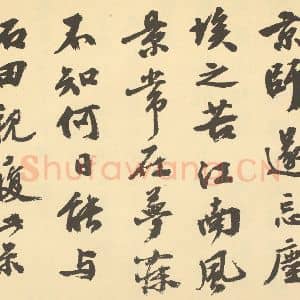 京師遂忘塵
埃之苦江南風
景常在夢寐
不知何日能与
石田親履
Shufawang.CN